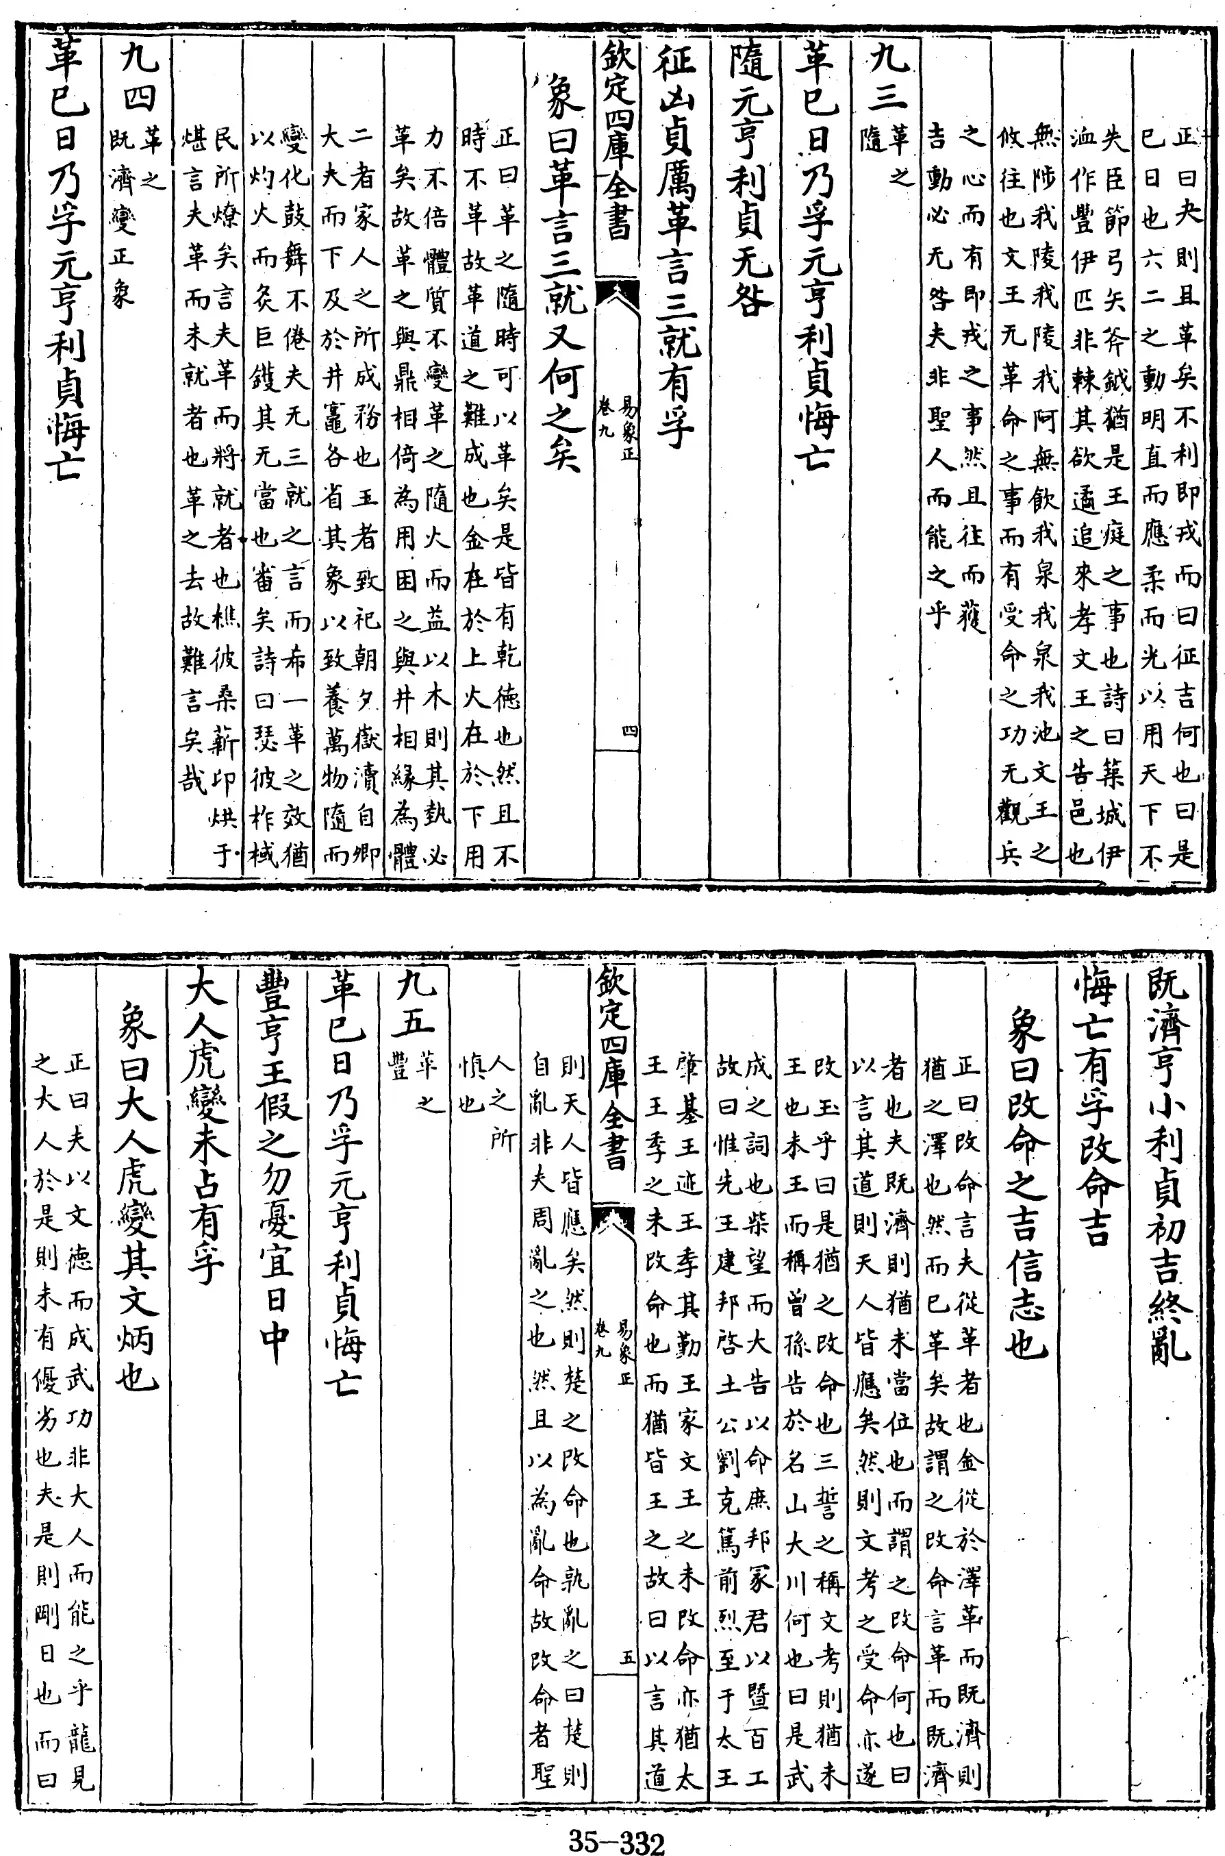 正曰夬則且革矣不利即戎而曰征吉何也曰是
已日也六二之動明直而應柔而光以用天下不
失臣節弓矢斧鉞猶是王庭之事也詩曰築城伊
淢作豐伊匹非棘其欲遹追來孝文王之告邑也
無陟我陵我陵我阿無飲我泉我泉我池文王之
攸往也文王无革命之事而有受命之功无觀兵
之心而有即戎之事然且往而獲
吉動必无咎夫非聖人而能之乎
九三革之
隨
革已日乃孚元亨利貞悔亡
隨元亨利貞无咎
征凶貞厲革言三就有孚
欽定四庫全書
易象正
卷九
四
象曰革言三就又何之矣
正曰革之隨時可以革矣是皆有乾德也然且不
時不革故革道之難成也金在於上火在於下用
力不倍體質不變革之隨火而益以木則其執必
革矣故革之與鼎相倚為用困之與井相緣為體
二者家人之所成務也王者致祀朝夕嶽瀆自卿
大夫而下及於井竈各省其象以致養萬物隨而
變化鼓舞不倦夫无三就之言而希一革之效猶
以灼火而灸巨鑊其无當也審矣詩曰瑟彼柞棫
民所燎矣言夫革而將就者也樵彼桑薪卬烘于
煁言夫革而未就者也革之去故難言矣哉
九四革之
既濟變正象
革已日乃孚元亨利貞悔亡
既濟亨小利貞初吉終亂
悔亡有孚改命吉
象曰改命之吉信志也
正曰改命言夫從革者也金從於澤革而既濟則
猶之澤也然而已革矣故謂之改命言革而既濟
者也夫既濟則猶未當位也而謂之改命何也曰
以言其道則天人皆應矣然則文考之受命亦遂
改玉乎曰是猶之改命也三誓之稱文考則猶未
王也未王而稱曾孫告於名山大川何也曰是武
成之詞也柴望而大告以命庶邦冢君以暨百工
故曰惟先王建邦啓土公劉克篤前烈至于太王
肇基王迹王季其勤王家文王之未改命亦猶太
王王季之未改命也而猶皆王之故曰以言其道
欽定四庫全書
易象正
卷九
五
則天人皆應矣然則楚之改命也孰亂之曰楚則
自亂非夫周亂之也然且以為亂命故改命者聖
人之所
慎也
九五革之
豐
革已日乃孚元亨利貞悔亡
豐亨王假之勿憂宜日中
大人虎變未占有孚
象曰大人虎變其文炳也
正曰夫以文德而成武功非大人而能之乎龍見
之大人於是則未有優劣也夫是則剛日也而曰
35-332